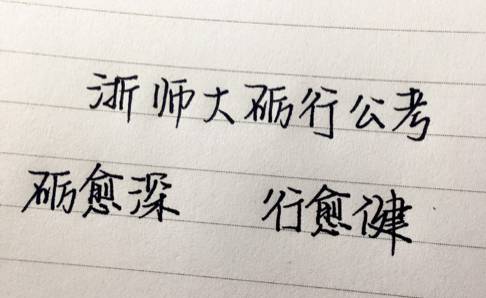 浙师大砺行公考
砺愈深 行愈健